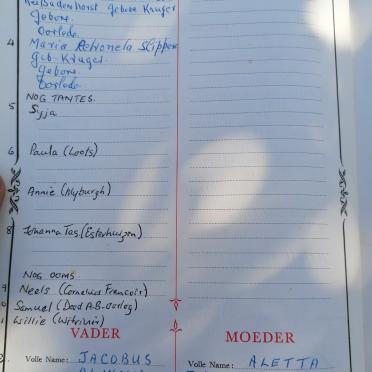 Badenhorst Gebore Kruger
Gebore.
Oorlede.
4
Maria Petronela Slippers
Geb. Kruger.
Gebore.
Oorlede.
NOG TANTES.
5 Syja
6 Paula (Loots)
Annie (Myburgh)
8 Johanna Tas. (Esterhuizen)
NOG OOMS.
9 Neels (Cornelius Francois)
0 Samuel (Dood A-B-oorlog)
1 Willie
VADER MOEDER
Volle Name: JACOBUS Volle Name: ALETTA